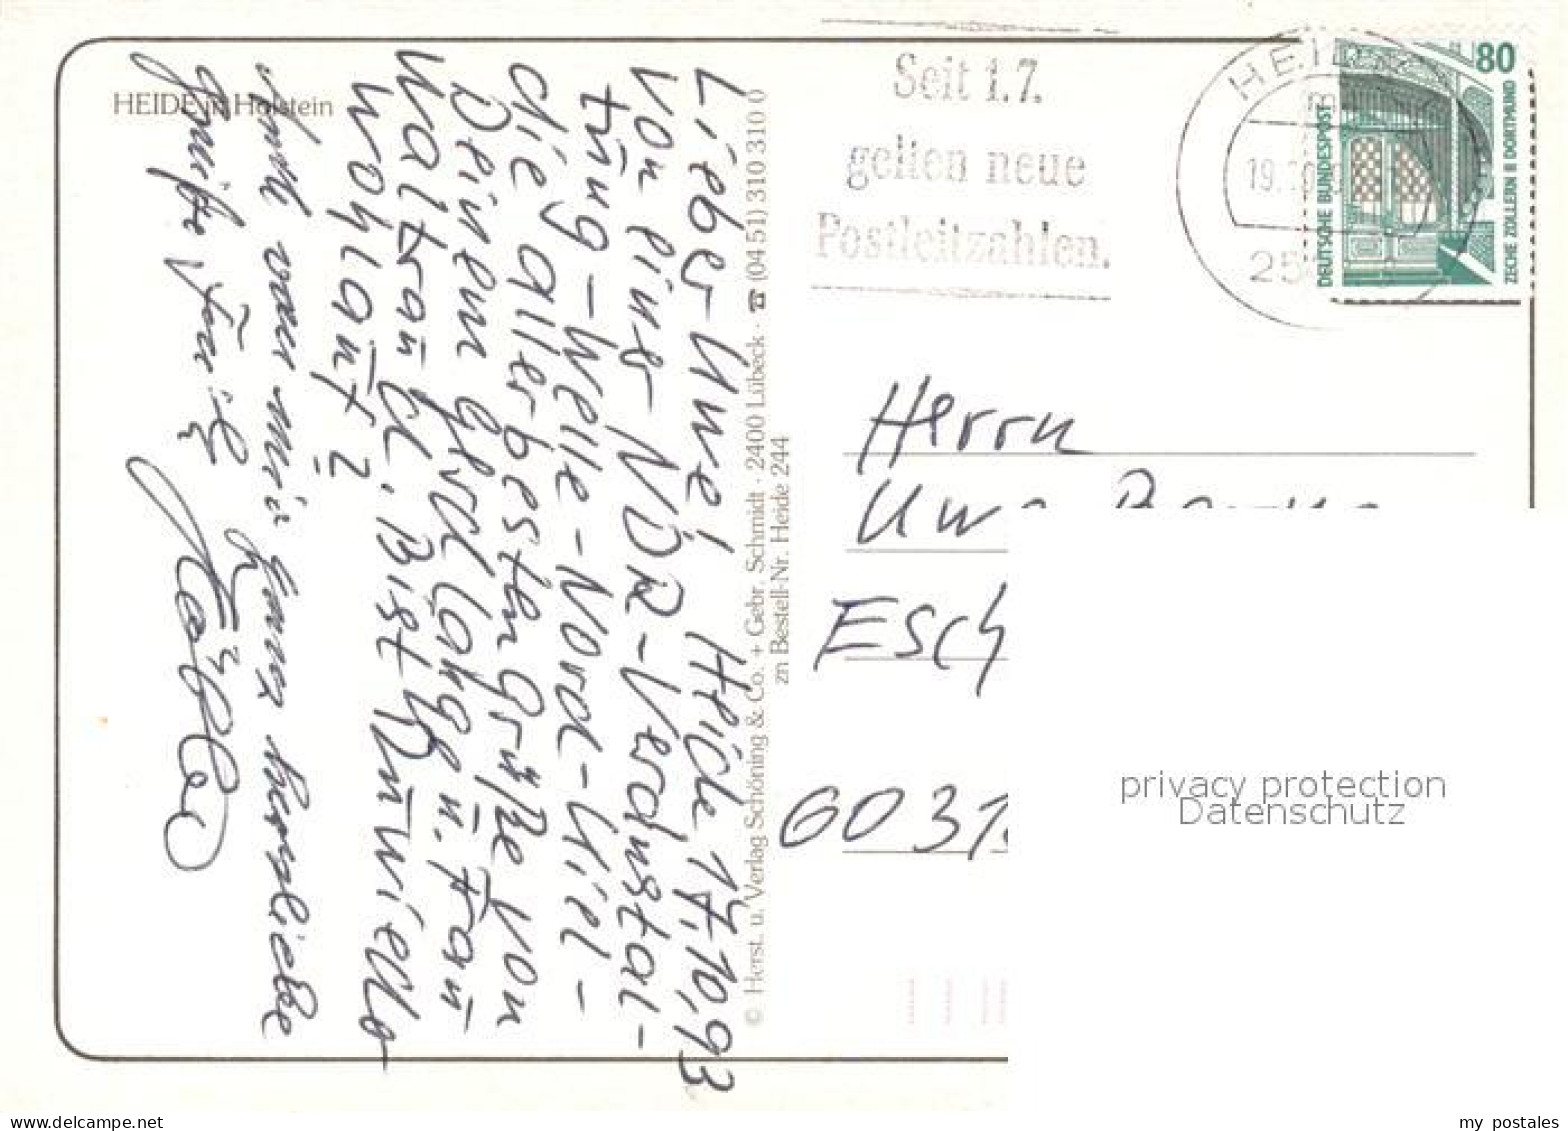 HEIDE in Holstein
Lieber Uwe! Heide 17.10,93
Von einer NDR-Veranstal-
tung-Welle-Nord-Kiel-
die allerbesten Grüße von
Deinem Gerd Lange u. Frau
Waltraud. Bist
wohlauf?
Auch von mir ganz herzliche
Grüße
© Herst. u. Verlag Schöning & Co. + Gebr. Schmidt · 2400 Lübeck · ☎ (04 51) 310 310 0
zn Bestell-Nr. Heide 244
Seit 1.7.
gelten neue
Postleitzahlen.
80
DEUTSCHE BUNDESPOST
ZECHE ZOLLERN II DORTMUND
Herrn
Uwe
Esch
6031
privacy protection
Datenschutz
delcampe.net
my_postales